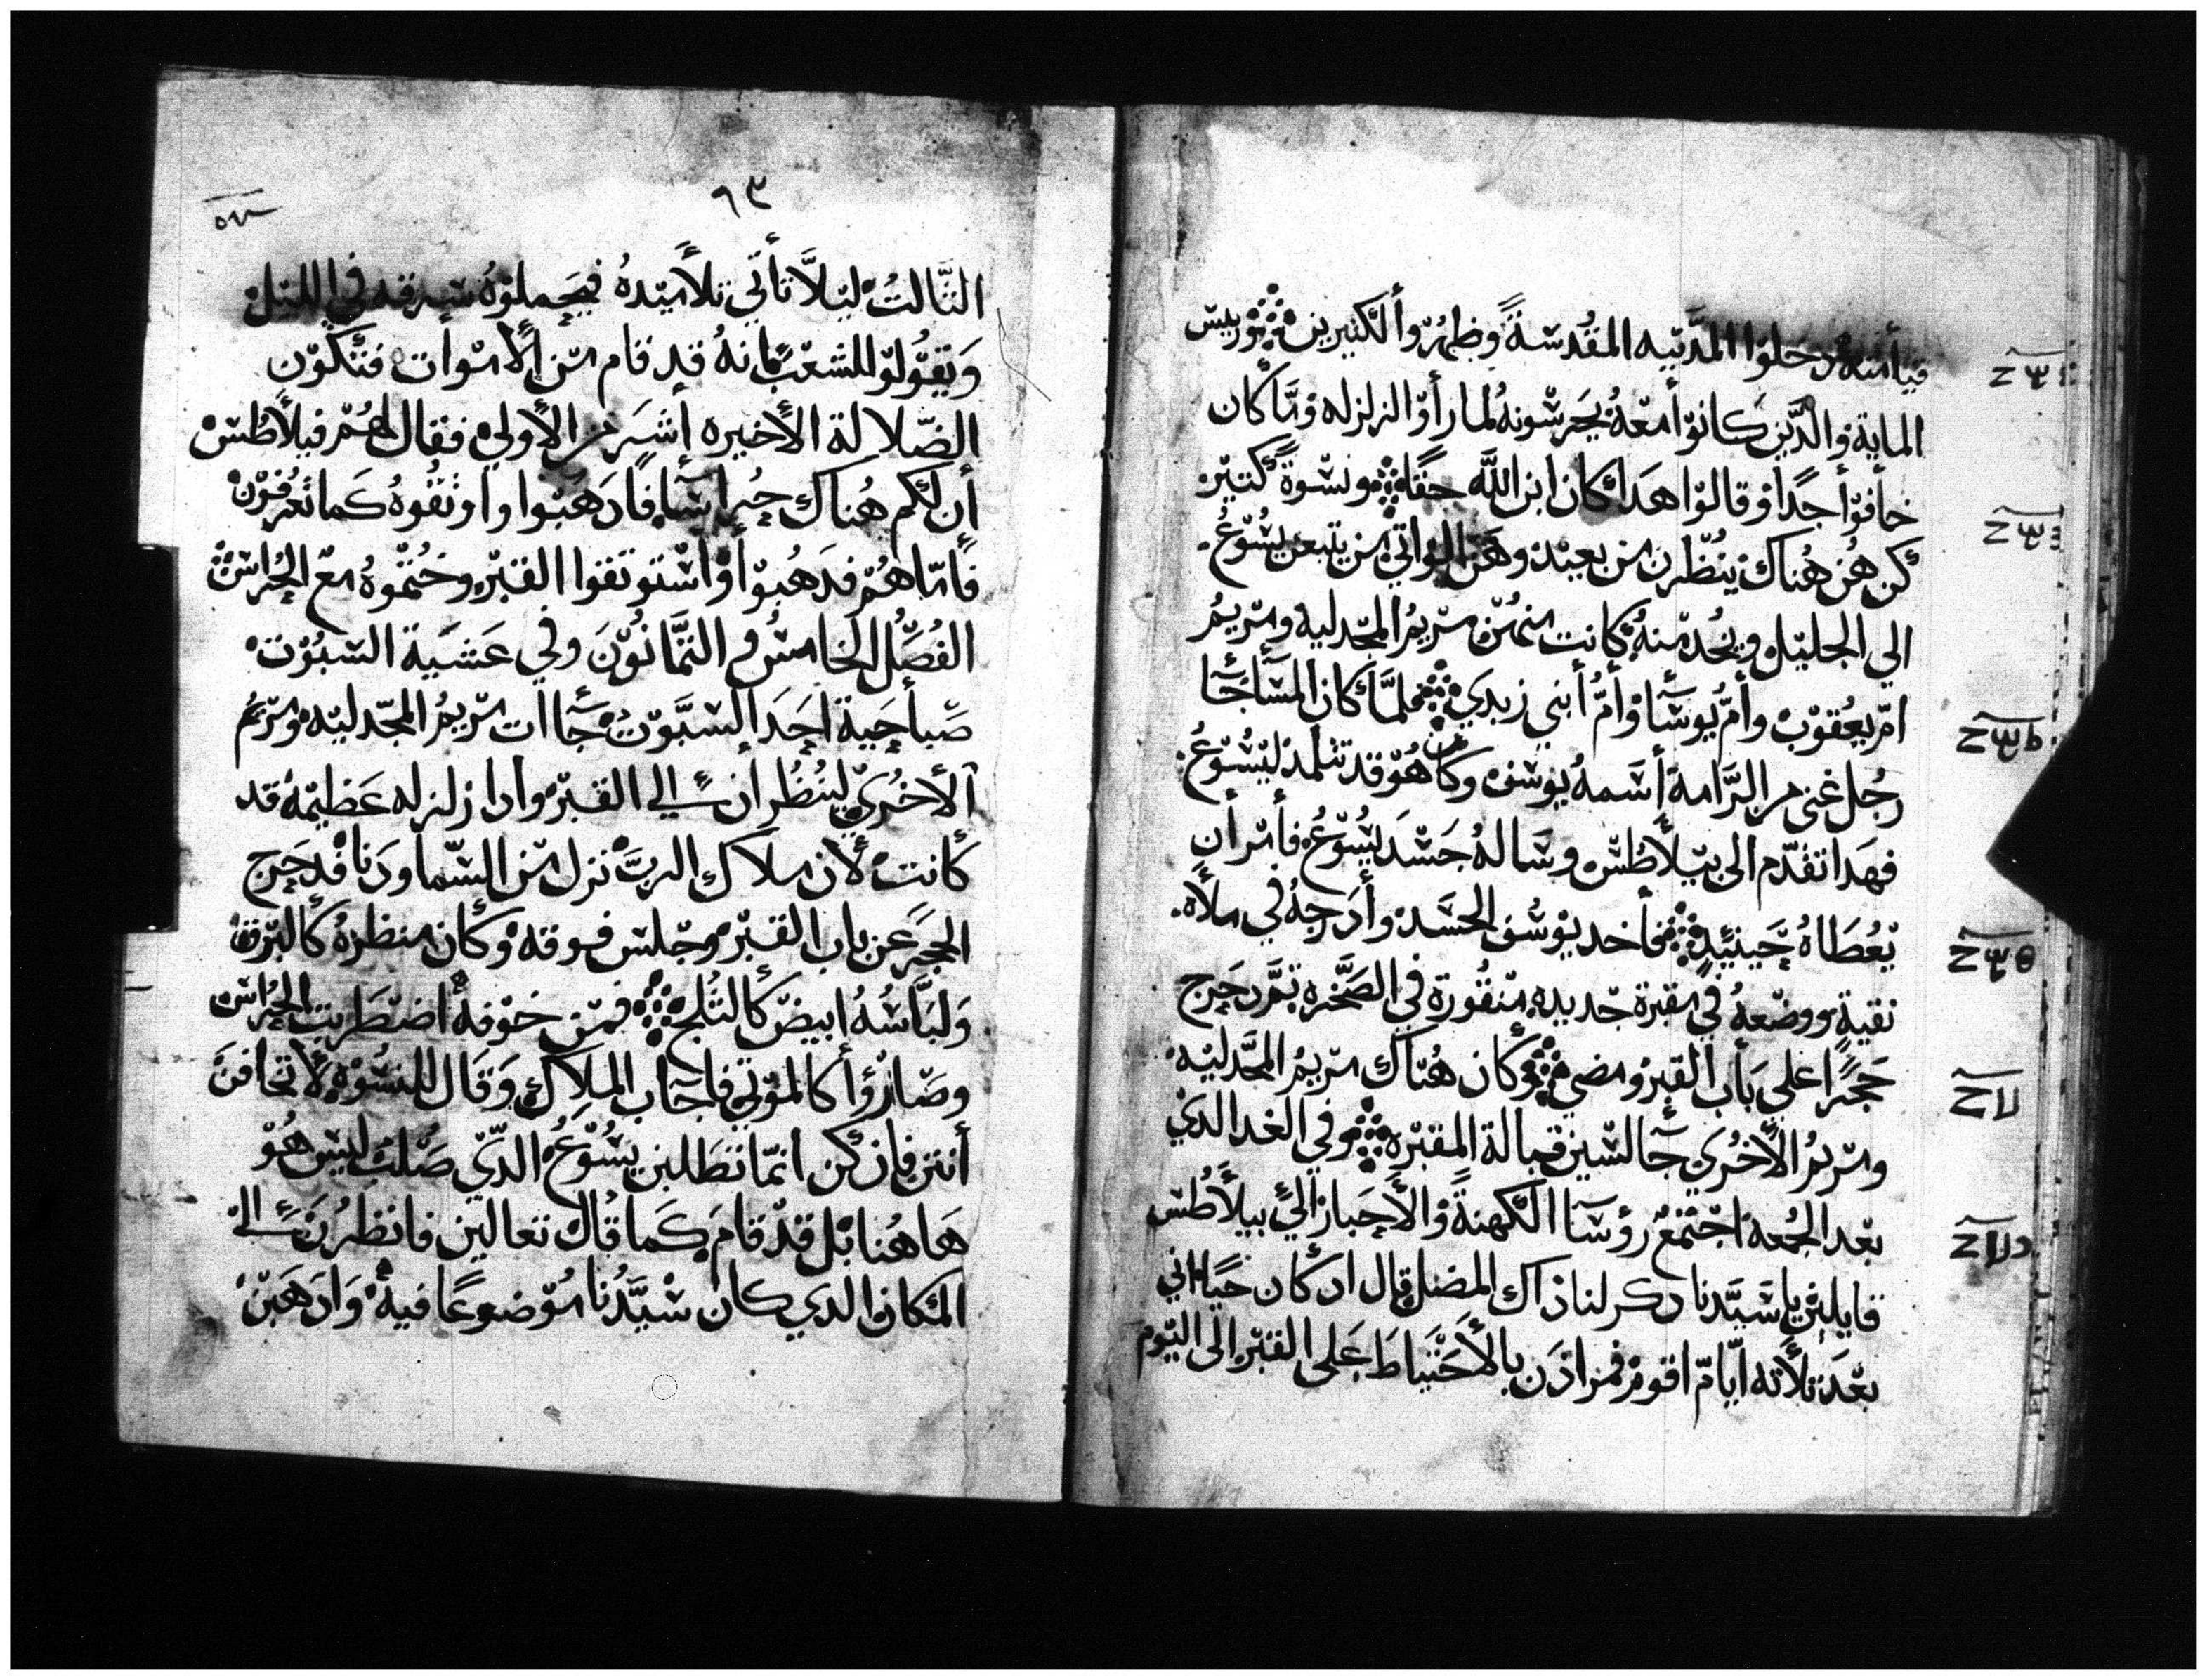 قيامته دخلوا المدنيه المقدسة وظهروا لكتيرين وريس
الماية والدين كانوا معه يحرسونه لما راوا الزلزله وما كان
خافوا جدا وقالوا هدا كان ابن الله حقا ونسوة كتير
كن هن هناك ينظرن من بعيد وهن اللواتي من يتبعن يسوع
الي الجليل ويخدمنه كانت منهن مريم المجدليه ومريم
ام يعقوب وام يوسا وام ابني زبدي فلما كان المسا جا
رجل غني من الرامة اسمه يوسف وكان هو قد تتلمد ليسوع
فهدا تقدم الى بيلاطس وساله جسد يسوع فامر ان
يعطاه حينيد فاخد يوسف الجسد وادرجه في ملاه
نقية ووضعه في مقبرة جديده منقورة في الصخره تم دحرج
حجرا علي باب القبر ومضي وكان هناك مريم المجدليه
ومريم الاخري جالسين قبالة المقبره وفي الغد الدي
بعد الجمعه اجتمع روسا الكهنة والاحبار الي بيلاطس
قايلين يا سيدنا دكرلنا ذاك المضل قال اد كان حيا اني
بعد تلاته ايام اقوم فمر ادن بالاحتياط على القبر الى اليوم
٦٣
التالت ليلا تاتي تلاميده فيحملوه سرقه في الليل
وتقولوا للشعب انه قد قام من الاموات فتكون
الضلالة الاخيره اشر من الاولي فقال لهم فيلاطس
ان لكم هناك حراسا فادهبوا واوتقوه كما تعرفون
فاما هم فدهبوا واستوتقوا القبر وختموه مع الحراس
الفصل الخامس و التمانون وفي عشية السبوت
صباحية احد السبوت جاات مريم المجدليه ومريم
الاخري لينظران الي القبر وادا زلزله عظيمه قد
كانت لان ملاك الرب نزل من السما ودنا فدحرج
الحجر عن باب القبر وجلس فوقه وكان منظره كالبرق
ولباسه ابيض كالتلج فمن خوفه اضطربت الحراس
وصاروا كالموتي فاجاب الملاك وقال للنسوه لا تخافن
انتن فان كن انما تطلبن يسوع الدي صلب ليس هو
هاهنا بل قد قام كما قال تعالين فانظرن الي
المكان الدي كان سيدنا موضوعا فيه وادهبن